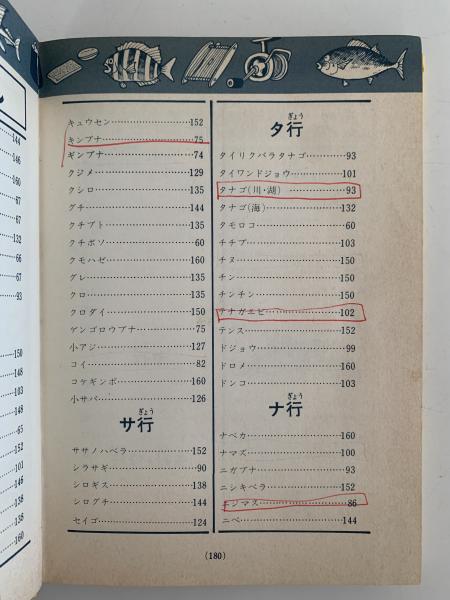 144
146
160
67
67
132
66
67
93
150
148
103
148
65
152
101
146
138
138
160
キュウセン…152
キンブナ…75
ギンブナ…74
クジメ…129
クシロ…135
グチ…144
クチブト…135
クチボソ…60
クモハゼ…160
グレ…135
クロ…135
クロダイ…150
ゲンゴロウブナ…75
小アジ…127
コイ…82
コケギンポ…160
小サバ…126
ぎょう
サ行
ササノハベラ…152
シラサギ…90
シロギス…138
シログチ…144
セイゴ…124
ぎょう
タ行
タイリクバラタナゴ…93
タイワンドジョウ…101
タナゴ(川・湖)…93
タナゴ(海)…132
タモロコ…60
チチブ…103
チヌ…150
チン…150
チンチン…150
テナガエビ…102
テンス…152
ドジョウ…99
ドロメ…160
ドンコ…103
ぎょう
ナ行
ナベカ…160
ナマズ…100
ニガブナ…93
ニシキベラ…152
ニジマス…86
ニベ…144
(180)